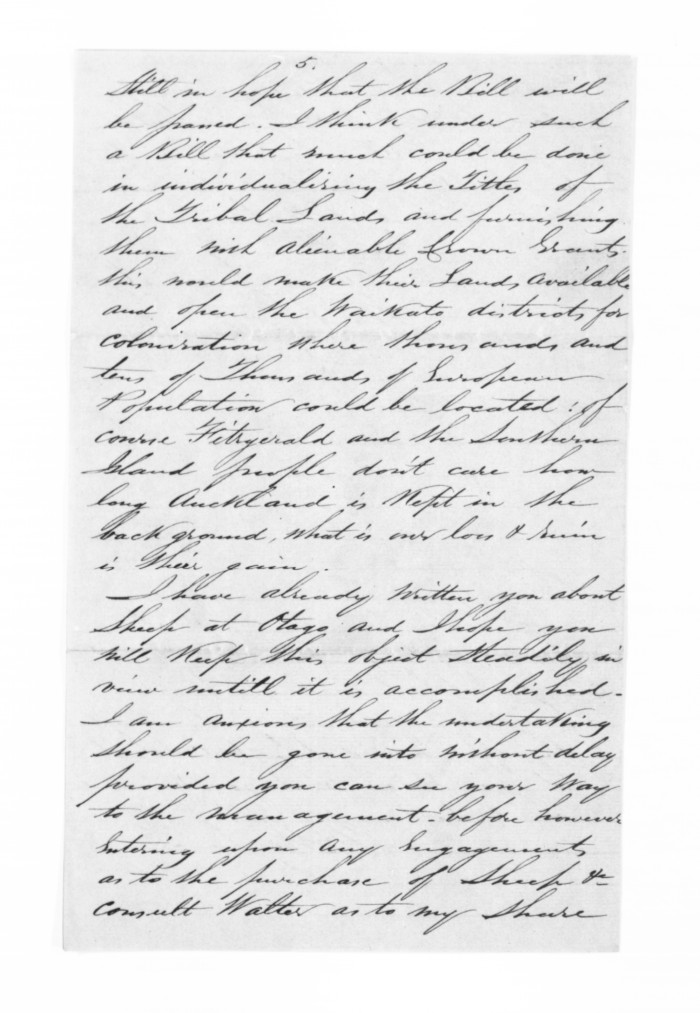 5.
Still in hope that the Bill will
be passed. I think under such
a Bill that much could be done
in individualizing the Titles of
the Tribal Lands and furnishing
them with alienable Crown Grants.
this would make their Lands available
and open the Waikato districts for
colonization where thousands and
tens of Thousands of European
Population could be located: of
course Fitzgerald and the Southern
Island people don't care how
long Auckland is Kept in the
back ground, what is our loss & ruin
is their gain.
I have already written you about
Sheep at Otago and I hope you
will Keep this object Steadily in
view untill it is accomplished.
I am anxious that the undertaking
should be gone into without delay
provided you can see your Way
to the management - before however
Entering upon any Engagements
as to the purchase of Sheep &c
consult Walter as to my Share